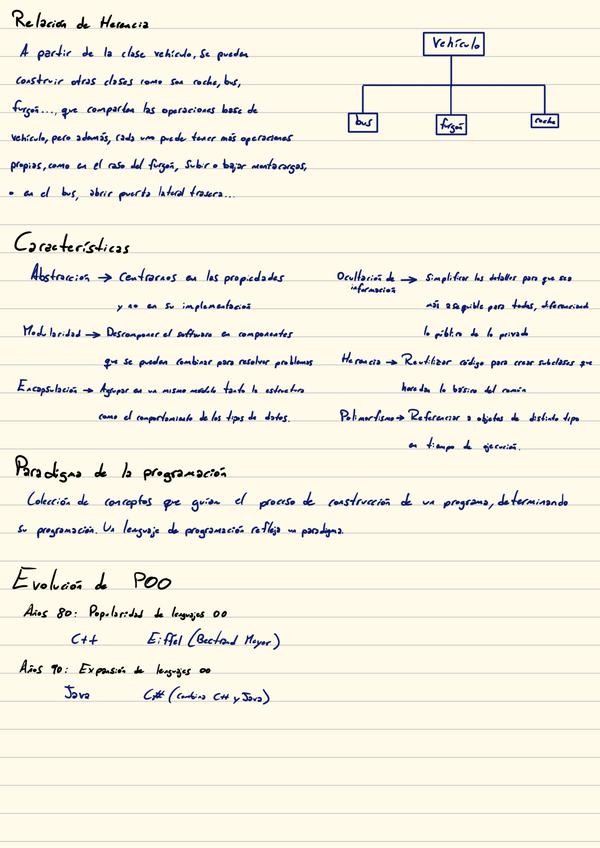 Relación de Herencia
A partir de la clase vehículo, se pueden
construir otras clases como son coche, bus,
furgón..., que comparten las operaciones base de
vehículo, pero además, cada uno puede tener más operaciones
propias, como en el caso del furgón, subir o bajar montacargas,
o en el bus, abrir puerta lateral trasera...
Vehículo
bus
furgón
coche
Características
Abstracción → Centrarnos en las propiedades
y no en su implementación
Modularidad → Descomponer el software en componentes
que se pueden combinar para resolver problemas
Encapsulación → Agrupar en un mismo módulo tanto la estructura
como el comportamiento de los tipos de datos.
Ocultación de información → Simplificar los detalles para que sea
más asequible para todos, diferenciando
lo público de lo privado
Herencia → Reutilizar código para crear subclases que
heredan lo básico del común
Polimorfismo → Referenciar a objetos de distinto tipo
en tiempo de ejecución.
Paradigma de la programación
Colección de conceptos que guían el proceso de construcción de un programa, determinando
su programación. Un lenguaje de programación refleja un paradigma.
Evolución de POO
Años 80: Popularidad de lenguajes OO
C++ Eiffel (Bertrand Meyer)
Años 90: Expansión de lenguajes OO
Java C# (combina C++ y Java)